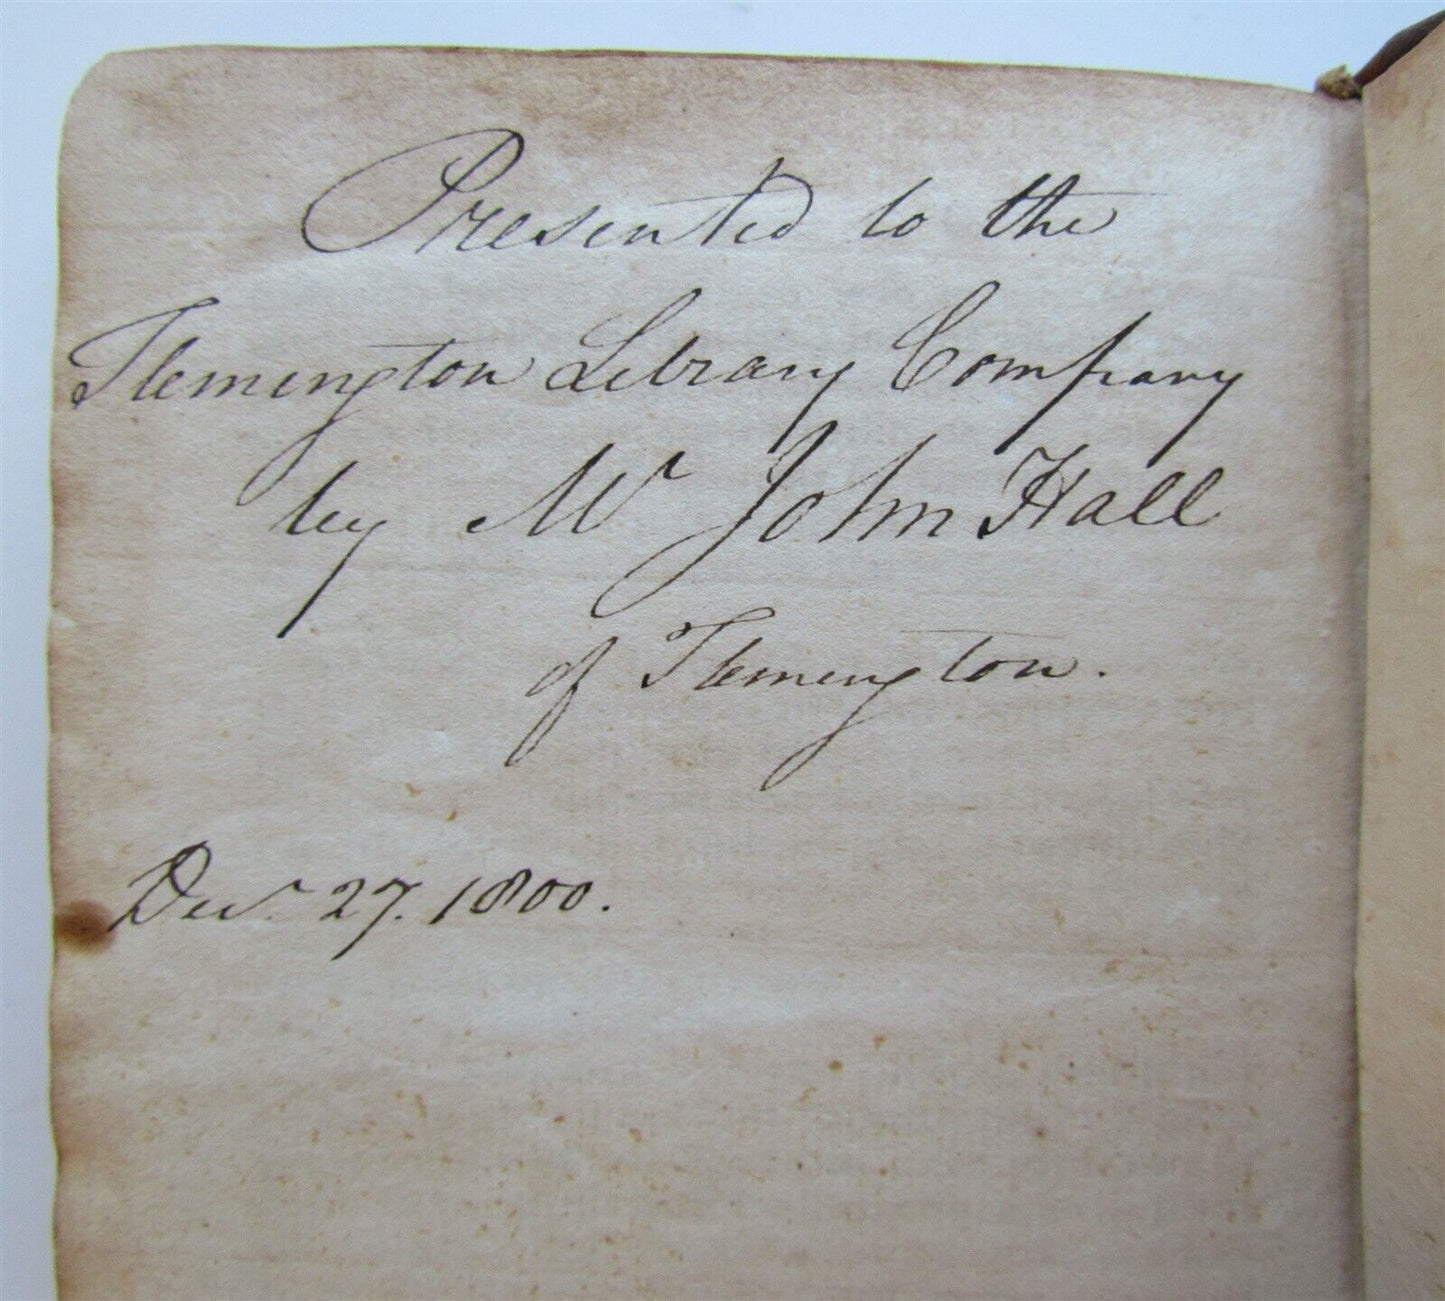 Presented to the
Flemington Library Company
by Mr John Hall
of Flemington.
Decr. 27. 1800.